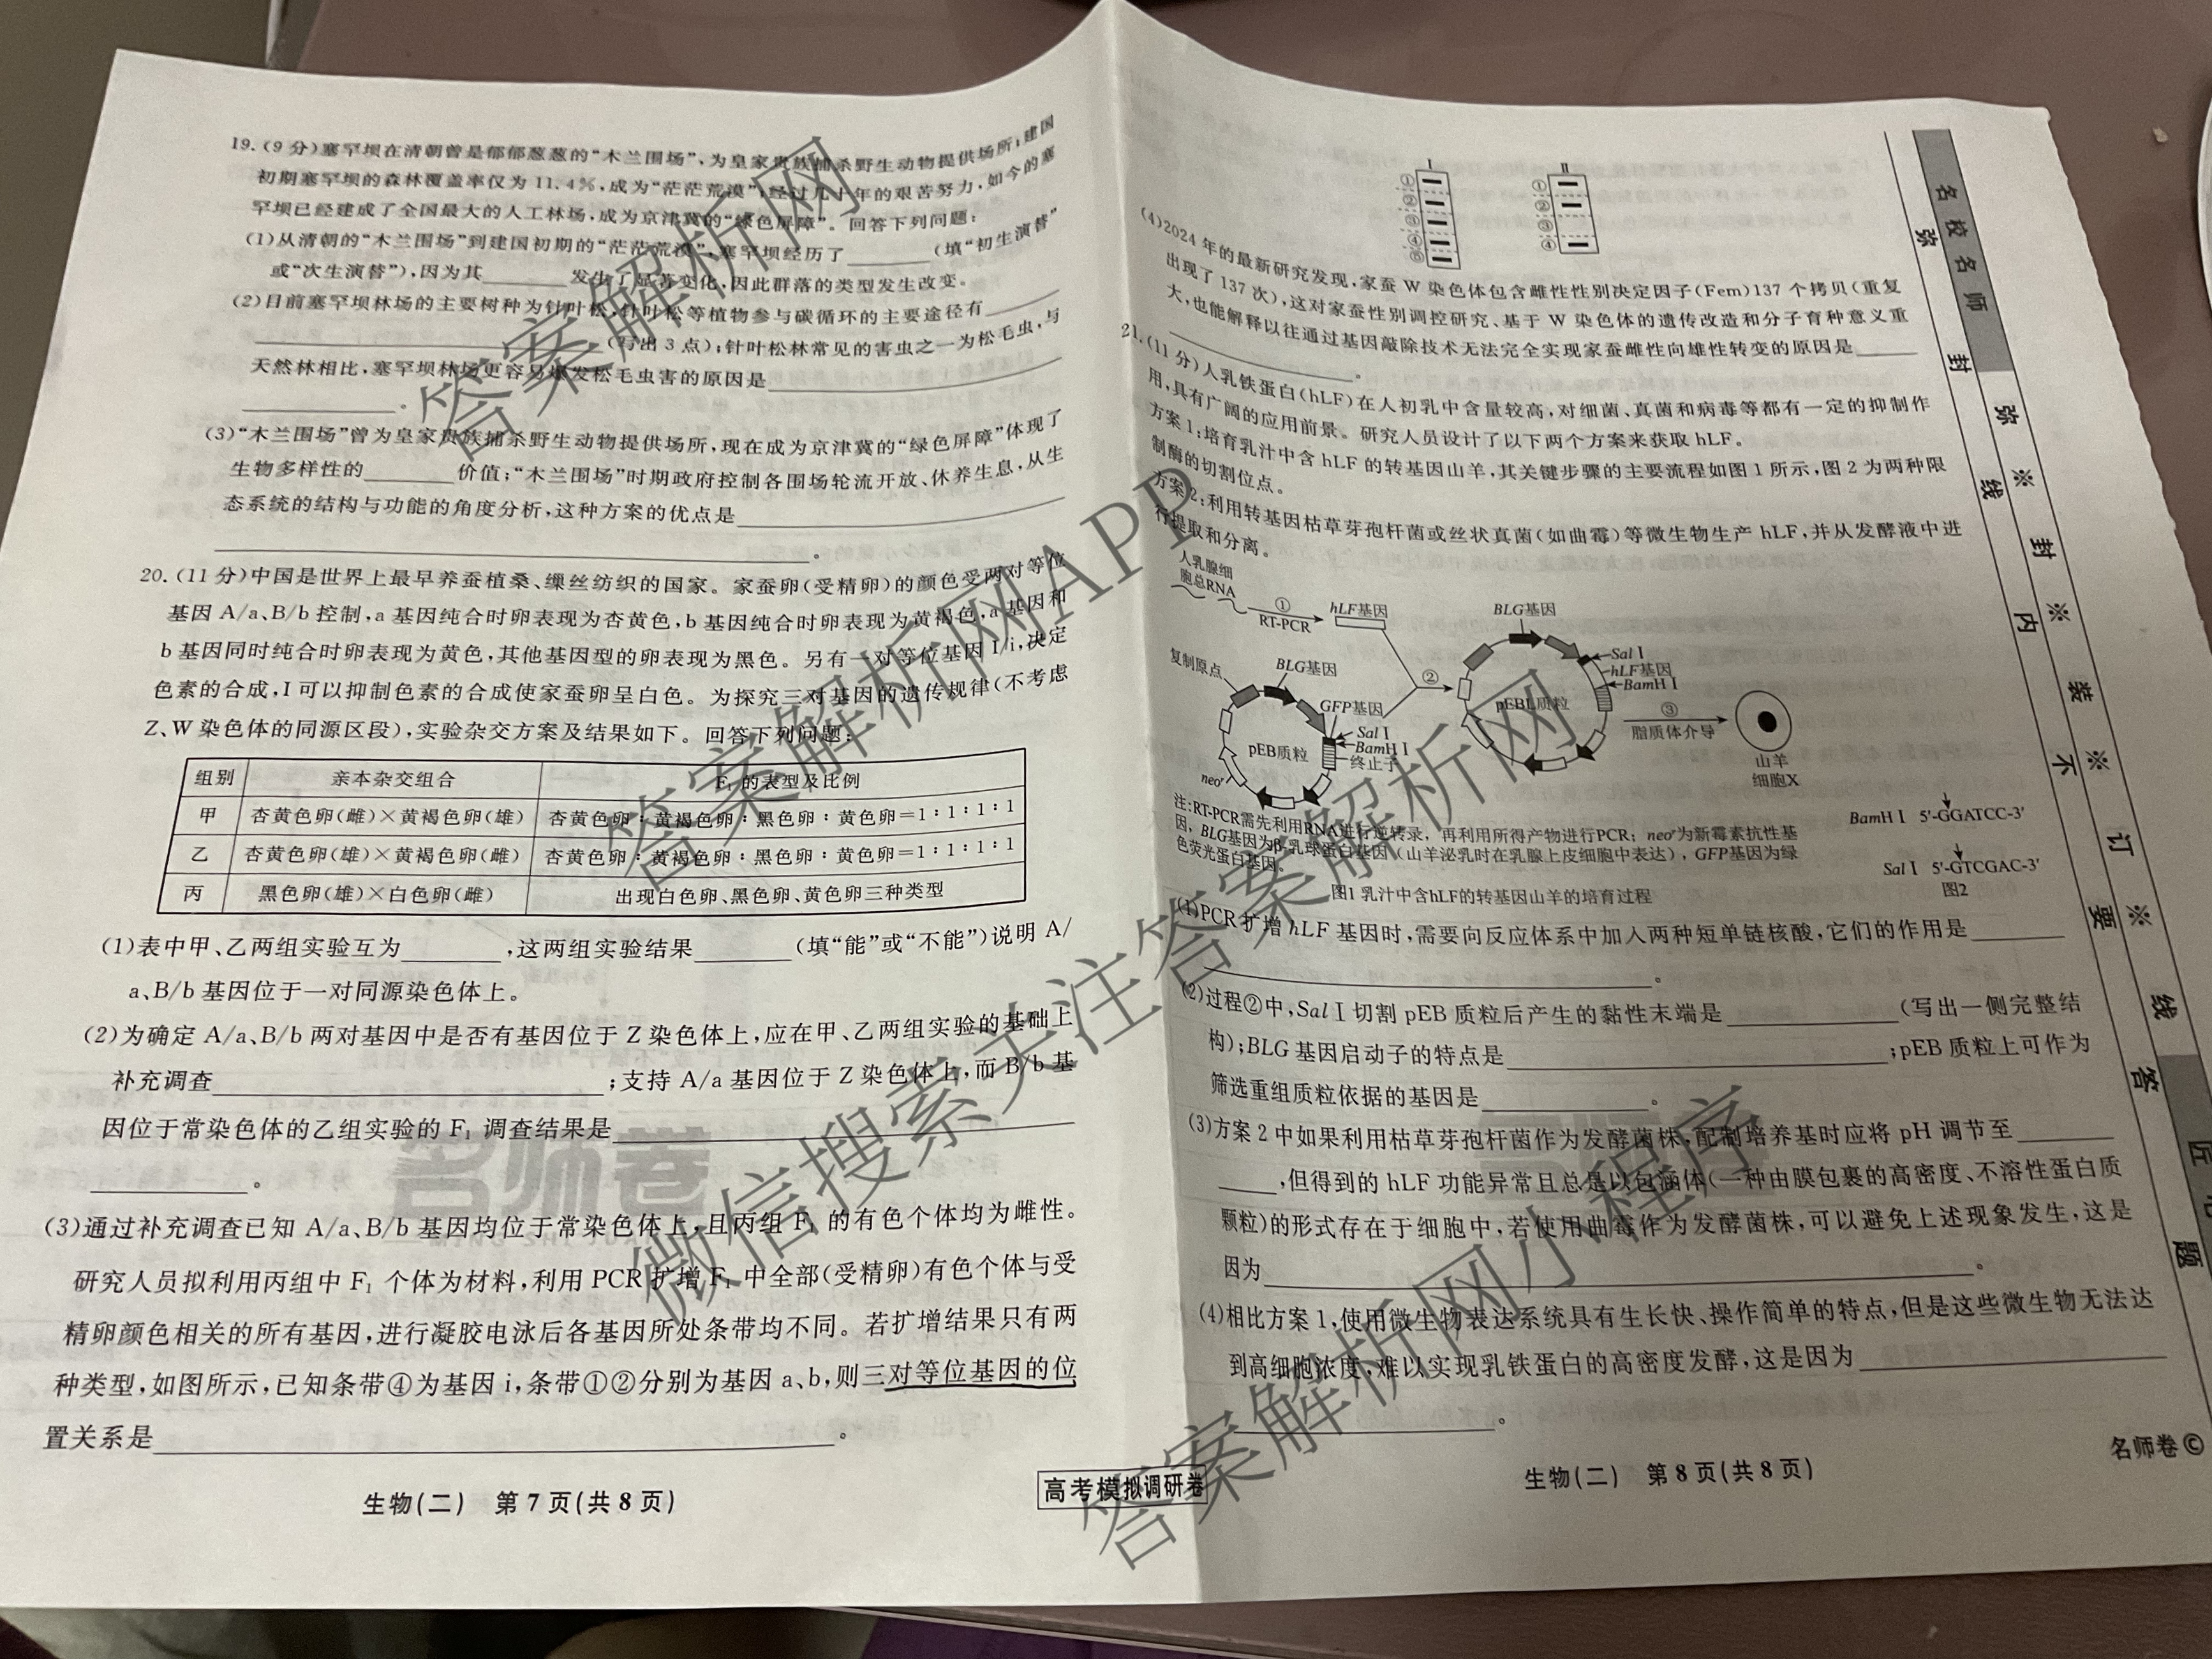 19.(9分)塞罕坝在清朝曾是郁郁葱葱的“木兰围场”,为皇家贵族捕杀野生动物提供场所;建国
初期塞罕坝的森林覆盖率仅为11.4%,成为“茫茫荒漠”;经过几十年的艰苦努力,如今的塞
罕坝已经建成了全国最大的人工林场,成为京津冀的“绿色屏障”。回答下列问题:
(1)从清朝的“木兰围场”到建国初期的“茫茫荒漠”,塞罕坝经历了________(填“初生演替”
或“次生演替”),因为其________发生了显著变化,因此群落的类型发生改变。
(2)目前塞罕坝林场的主要树种为针叶松,针叶松等植物参与碳循环的主要途径有________
________(写出3点);针叶松林常见的害虫之一为松毛虫,与
天然林相比,塞罕坝林场更容易爆发松毛虫害的原因是________
________。
(3)“木兰围场”曾为皇家贵族捕杀野生动物提供场所,现在成为京津冀的“绿色屏障”体现了
生物多样性的________价值;“木兰围场”时期政府控制各围场轮流开放、休养生息,从生
态系统的结构与功能的角度分析,这种方案的优点是________
________。
20.(11分)中国是世界上最早养蚕植桑、缫丝纺织的国家。家蚕卵(受精卵)的颜色受两对等位
基因A/a、B/b控制,a基因纯合时卵表现为杏黄色,b基因纯合时卵表现为黄褐色,a基因和
b基因同时纯合时卵表现为黄色,其他基因型的卵表现为黑色。另有一对等位基因I/i,决定
色素的合成,I可以抑制色素的合成使家蚕卵呈白色。为探究三对基因的遗传规律(不考虑
Z、W染色体的同源区段),实验杂交方案及结果如下。回答下列问题:
组别 亲本杂交组合 F₁的表型及比例
甲 杏黄色卵(雌)×黄褐色卵(雄) 杏黄色卵:黄褐色卵:黑色卵:黄色卵=1:1:1:1
乙 杏黄色卵(雄)×黄褐色卵(雌) 杏黄色卵:黄褐色卵:黑色卵:黄色卵=1:1:1:1
丙 黑色卵(雄)×白色卵(雌) 出现白色卵、黑色卵、黄色卵三种类型
(1)表中甲、乙两组实验互为________,这两组实验结果________(填“能”或“不能”)说明A/
a、B/b基因位于一对同源染色体上。
(2)为确定A/a、B/b两对基因中是否有基因位于Z染色体上,应在甲、乙两组实验的基础上
补充调查________;支持A/a基因位于Z染色体上,而B/b基
因位于常染色体的乙组实验的F₁调查结果是________
________。
(3)通过补充调查已知A/a、B/b基因均位于常染色体上,且丙组F₁的有色个体均为雌性。
研究人员拟利用丙组中F₁个体为材料,利用PCR扩增F₁中全部(受精卵)有色个体与受
精卵颜色相关的所有基因,进行凝胶电泳后各基因所处条带均不同。若扩增结果只有两
种类型,如图所示,已知条带④为基因i,条带①②分别为基因a、b,则三对等位基因的位
置关系是________。
生物(二) 第7页(共8页)
高考模拟调研卷
Ⅰ Ⅱ
① ①
② ②
③ ③
④ ④
⑤
(4)2024年的最新研究发现,家蚕W染色体包含雌性性别决定因子(Fem)137个拷贝(重复
出现了137次),这对家蚕性别调控研究、基于W染色体的遗传改造和分子育种意义重
大,也能解释以往通过基因敲除技术无法完全实现家蚕雌性向雄性转变的原因是________
________。
21.(11分)人乳铁蛋白(hLF)在人初乳中含量较高,对细菌、真菌和病毒等都有一定的抑制作
用,具有广阔的应用前景。研究人员设计了以下两个方案来获取hLF。
方案1:培育乳汁中含hLF的转基因山羊,其关键步骤的主要流程如图1所示,图2为两种限
制酶的切割位点。
方案2:利用转基因枯草芽孢杆菌或丝状真菌(如曲霉)等微生物生产hLF,并从发酵液中进
行提取和分离。
人乳腺细
胞总RNA
①
RT-PCR
hLF基因
BLG基因
复制原点
BLG基因
GFP基因
Sal Ⅰ
BamH Ⅰ
终止子
pEB质粒
neoʳ
②
Sal Ⅰ
hLF基因
BamH Ⅰ
pEBL质粒
③
脂质体介导
山羊
细胞X
注:RT-PCR需先利用RNA进行逆转录,再利用所得产物进行PCR;neoʳ为新霉素抗性基
因,BLG基因为β-乳球蛋白基因(山羊泌乳时在乳腺上皮细胞中表达),GFP基因为绿
色荧光蛋白基因。
图1 乳汁中含hLF的转基因山羊的培育过程
BamH Ⅰ 5'-GGATCC-3'
Sal Ⅰ 5'-GTCGAC-3'
图2
(1)PCR扩增hLF基因时,需要向反应体系中加入两种短单链核酸,它们的作用是________
________。
(2)过程②中,Sal Ⅰ切割pEB质粒后产生的黏性末端是________(写出一侧完整结
构);BLG基因启动子的特点是________;pEB质粒上可作为
筛选重组质粒依据的基因是________。
(3)方案2中如果利用枯草芽孢杆菌作为发酵菌株,配制培养基时应将pH调节至________
____,但得到的hLF功能异常且总是以包涵体(一种由膜包裹的高密度、不溶性蛋白质
颗粒)的形式存在于细胞中,若使用曲霉作为发酵菌株,可以避免上述现象发生,这是
因为________。
(4)相比方案1,使用微生物表达系统具有生长快、操作简单的特点,但是这些微生物无法达
到高细胞浓度,难以实现乳铁蛋白的高密度发酵,这是因为________
________。
生物(二) 第8页(共8页)
名师卷©
名校名师
弥 封 线 内 不 要 答 题
弥 ※ 封 ※ 装 ※ 订 ※ 线
名师卷
答案解析网
答案解析网APP
微信搜索关注答案解析网
答案解析网小程序